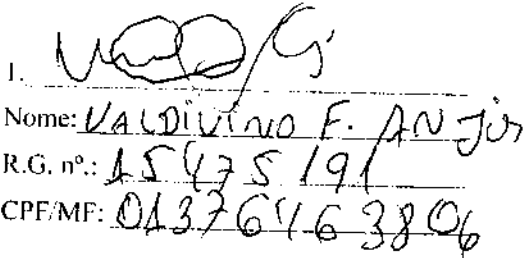 1.
Nome: VALDIVINO F. ANJOS
R.G. nº.: 15475191
CPF/MF: 01376463806